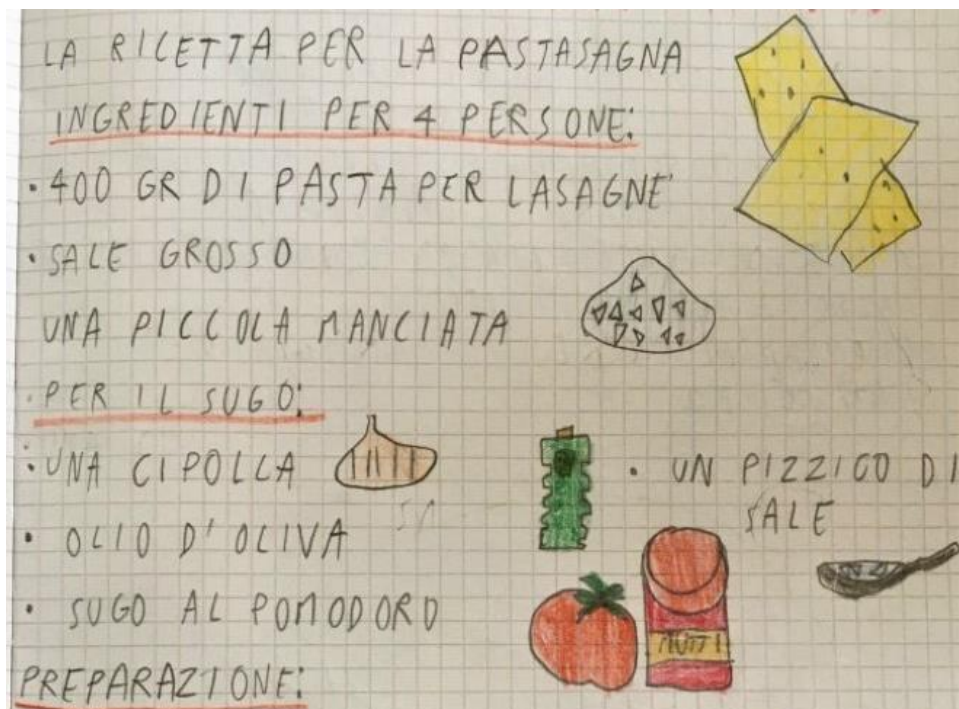 LA RICETTA PER LA PASTASAGNA
INGREDIENTI PER 4 PERSONE:
• 400 GR DI PASTA PER LASAGNE
• SALE GROSSO
UNA PICCOLA MANCIATA
• PER IL SUGO:
• UNA CIPOLLA
• UN PIZZICO DI
SALE
• OLIO D'OLIVA
• SUGO AL POMODORO
MUTTI
PREPARAZIONE: